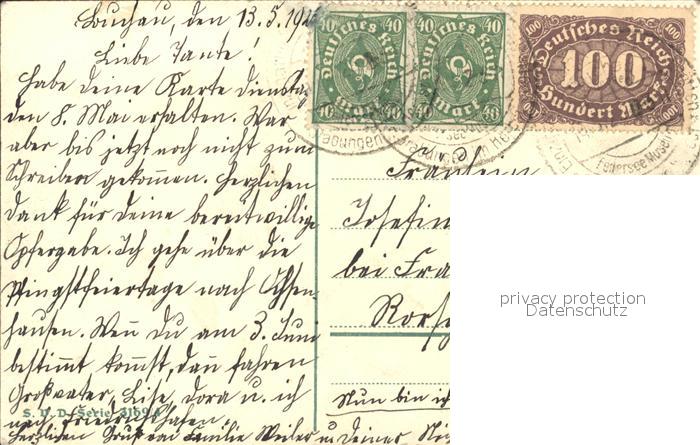 Buchau, den 13.5.192
Liebe Tante!
Habe deine Karte Dienstag
den 8. Mai erhalten. War
aber bis jetzt noch nicht zum
Schreiben gekommen. Herzlichen
Dank für Deine bereitwillige
Opfergabe. Ich gehe über die
Pfingstfeiertage nach Ochsen-
hausen. Wenn Du am 3. Juni
bestimmt kommst, dann fahren
Großvater, Lise, Dora u. ich
nach Friedrichshafen.
Herzlichen Gruß von Familie Weiler u. Deiner
S. V. D.-Serie 3169/4
Deutsches Reich
40 40
40 Mark 40
Deutsches Reich
40 40
40 Mark 40
Deutsches Reich
100 100
100
Hundert Mark
100 100
Federsee Museum
Fräulein
Josefin
bei Fra
Nun bin ich
privacy protection
Datenschutz